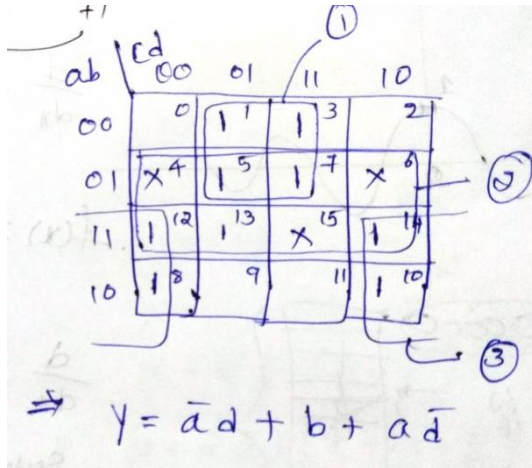 +1
①
cd
ab 00 01 11 10
00 0 1 1 1 3 2
01 x 4 1 5 1 7 x 6 ②
11 1 12 1 13 x 15 1 14
10 1 8 9 11 1 10
③
⇒ y = ād + b + a d̄